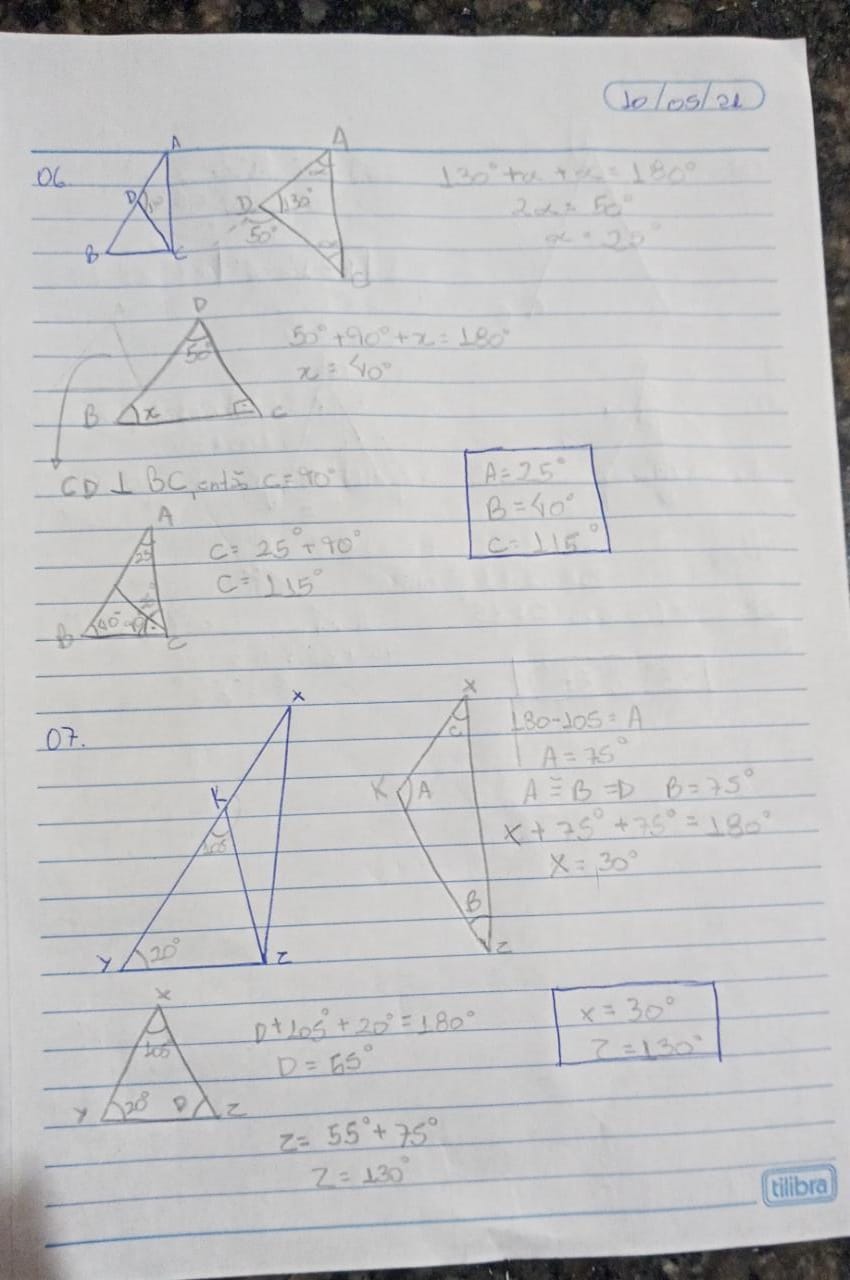 10/05/21
06.
A
D
B
C
A
D
130°
α
50°
α
130° + α + α = 180°
2α = 50°
α = 25°
D
50°
B
x
C
50° + 90° + x = 180°
x = 40°
CD ⊥ BC, então C = 90°
A = 25°
B = 40°
C = 115°
A
25°
B
40°
C
C = 25° + 90°
C = 115°
07.
X
K
105
Y
20°
Z
X
C
K
A
B
Z
180 - 105 = A
A = 75°
A ≅ B ⇒ B = 75°
X + 75° + 75° = 180°
X = 30°
X
105°
Y
20°
D
Z
D + 105° + 20° = 180°
D = 55°
Z = 55° + 75°
Z = 130°
X = 30°
Z = 130°
tilibra